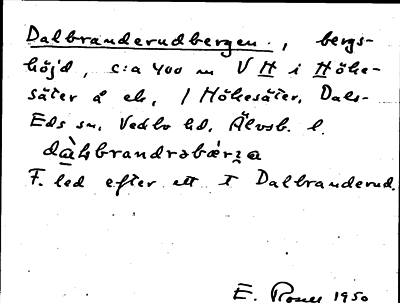 Dalbranderudbergen., bergs-
höjd, c:a 400 m V H i Höke-
säter å ek, / Hökesäter, Dals-
Eds sn, Vedbo hd, Älvsb. l.
F. led efter ett T Dalbranderud.
E. 1950